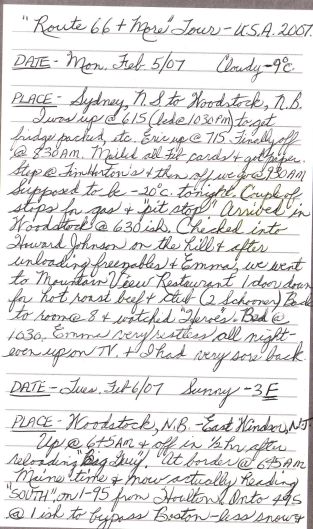 "Route 66 + More" Tour - U.S.A. 2007
DATE - Mon. Feb 5/07 Cloudy -9°c
PLACE - Sydney, N.S to Woodstock, N.B.
I was up @ 615 (bed @ 1030 PM) to get
fridge packed, etc. Eric up @ 715. Finally off
@ 830 AM. Mailed all cards + got paper.
Stop @ Tim Horton's + then off we go @ 930 AM
Supposed to be -20°c tonight. Couple of
stops for gas + "pit stop". Arrived in
Woodstock @ 630 ish. Checked into
Howard Johnson on the hill + after
unloading freezables + Emma, we went
to Mountain View Restaurant 1 door down
for hot roast beef + (2 schooners) Back
to room @ 8 + watched "Heroes". Bed @
1030. Emma very restless all night -
even up on TV + I had very sore back
DATE - Tues. Feb 6/07 Sunny -3F
PLACE - Woodstock, N.B. - East Windsor, N.J.
Up @ 645 AM + off in ½ hr after
reloading "Big Guy". At border @ 645 AM
Maine time + now actually heading
"SOUTH" on I-95 from Houlton. Onto 495
@ 1 ish to bypass Boston - less snow +